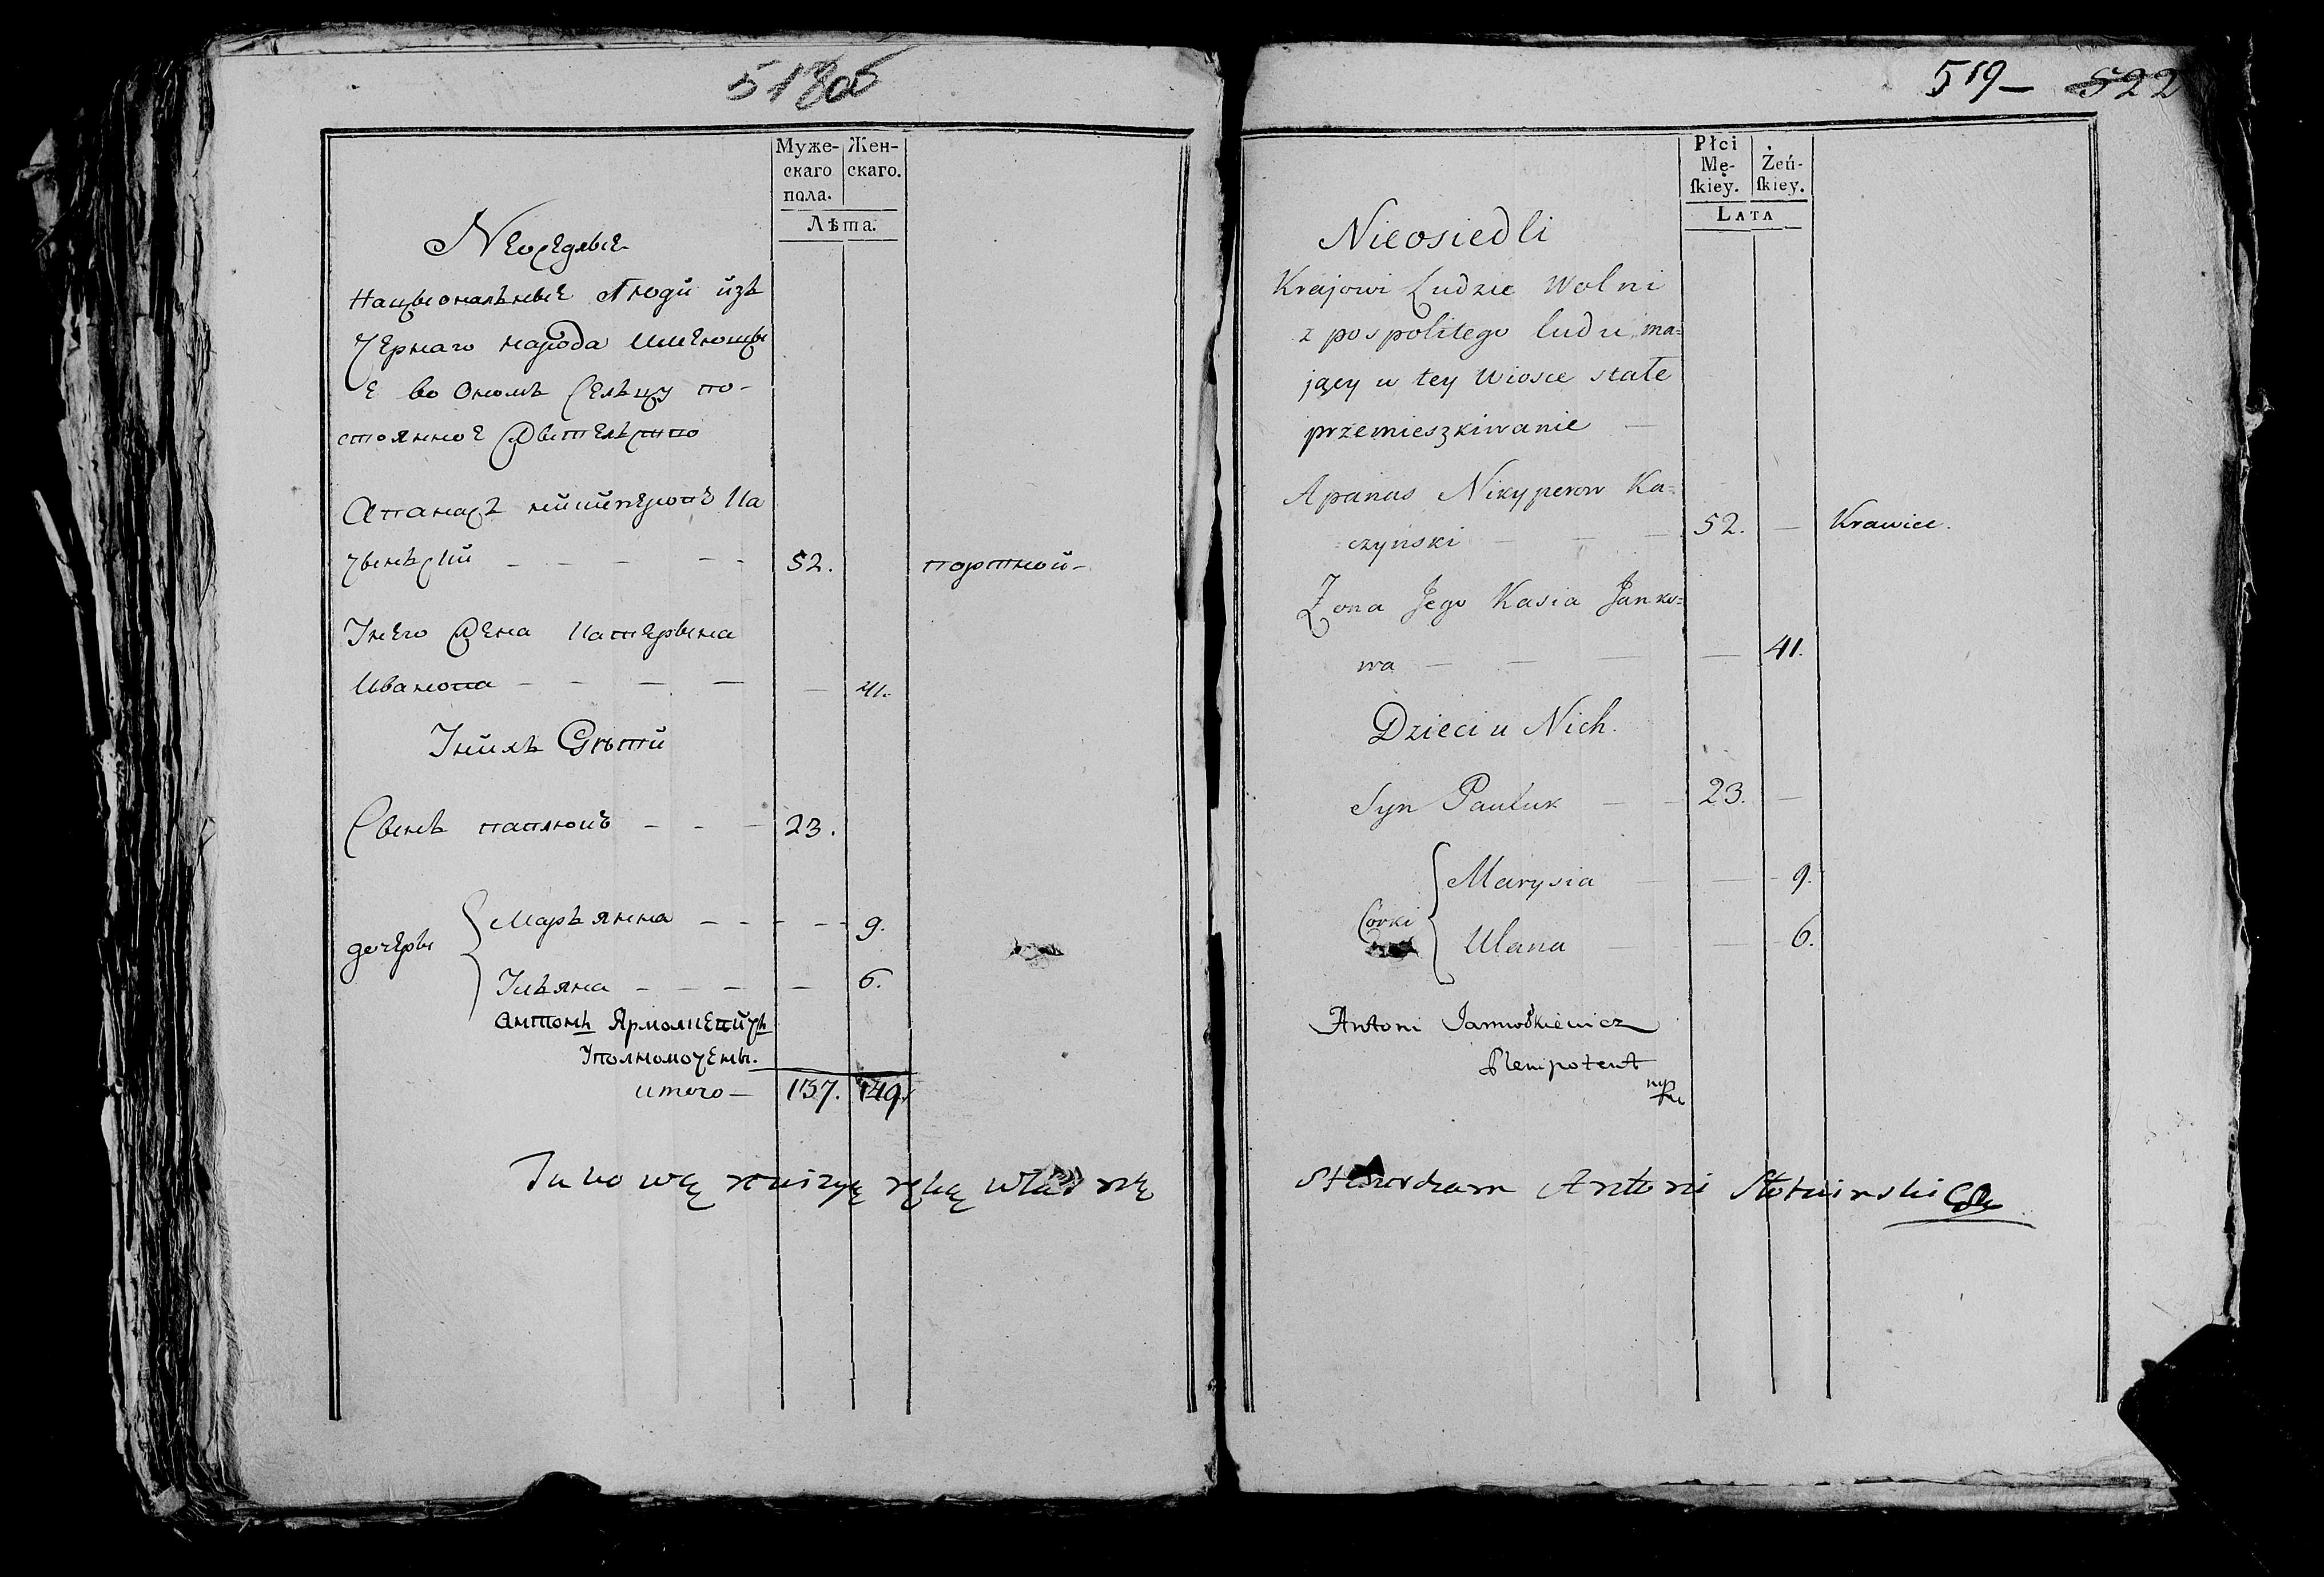 518об
Муже-
скаго
пола.
Жен-
скаго.
Лѣта.
Неоседлые
Націоналные Люди изъ
чернаго народа имеющы
е во ономъ селцу по-
стоянное жителство
Апанасъ никиперовъ Ка
чынскій 52. портной
У него жена катерына
Иванова 41.
У нихъ дѣти
Сынъ павлюкъ 23.
дочеры
Марьянна 9.
Ульяна 6.
Антонъ Ярмолкевичъ
Уполномочены.
итого 137. 149.
Takową rewizyę ręką własną
519 522
Płci
Mę-
ſkiey.
Żeń-
ſkiey.
Lata
Nieosiedli
Krajowi Ludzie Wolni
z pospolitego ludu ma=
jący w tey Wiosce stałe
przemieszkiwanie
Apanas Nikyperow Ka=
=czynski 52. Krawiec.
Zona Jego Kasia Janko=
wa 41.
Dzieci u Nich.
Syn Pauluk 23.
Corki
Marysia 9.
Ulana 6.
Antoni
Plenipotent
mp
stwierdzam Antoni